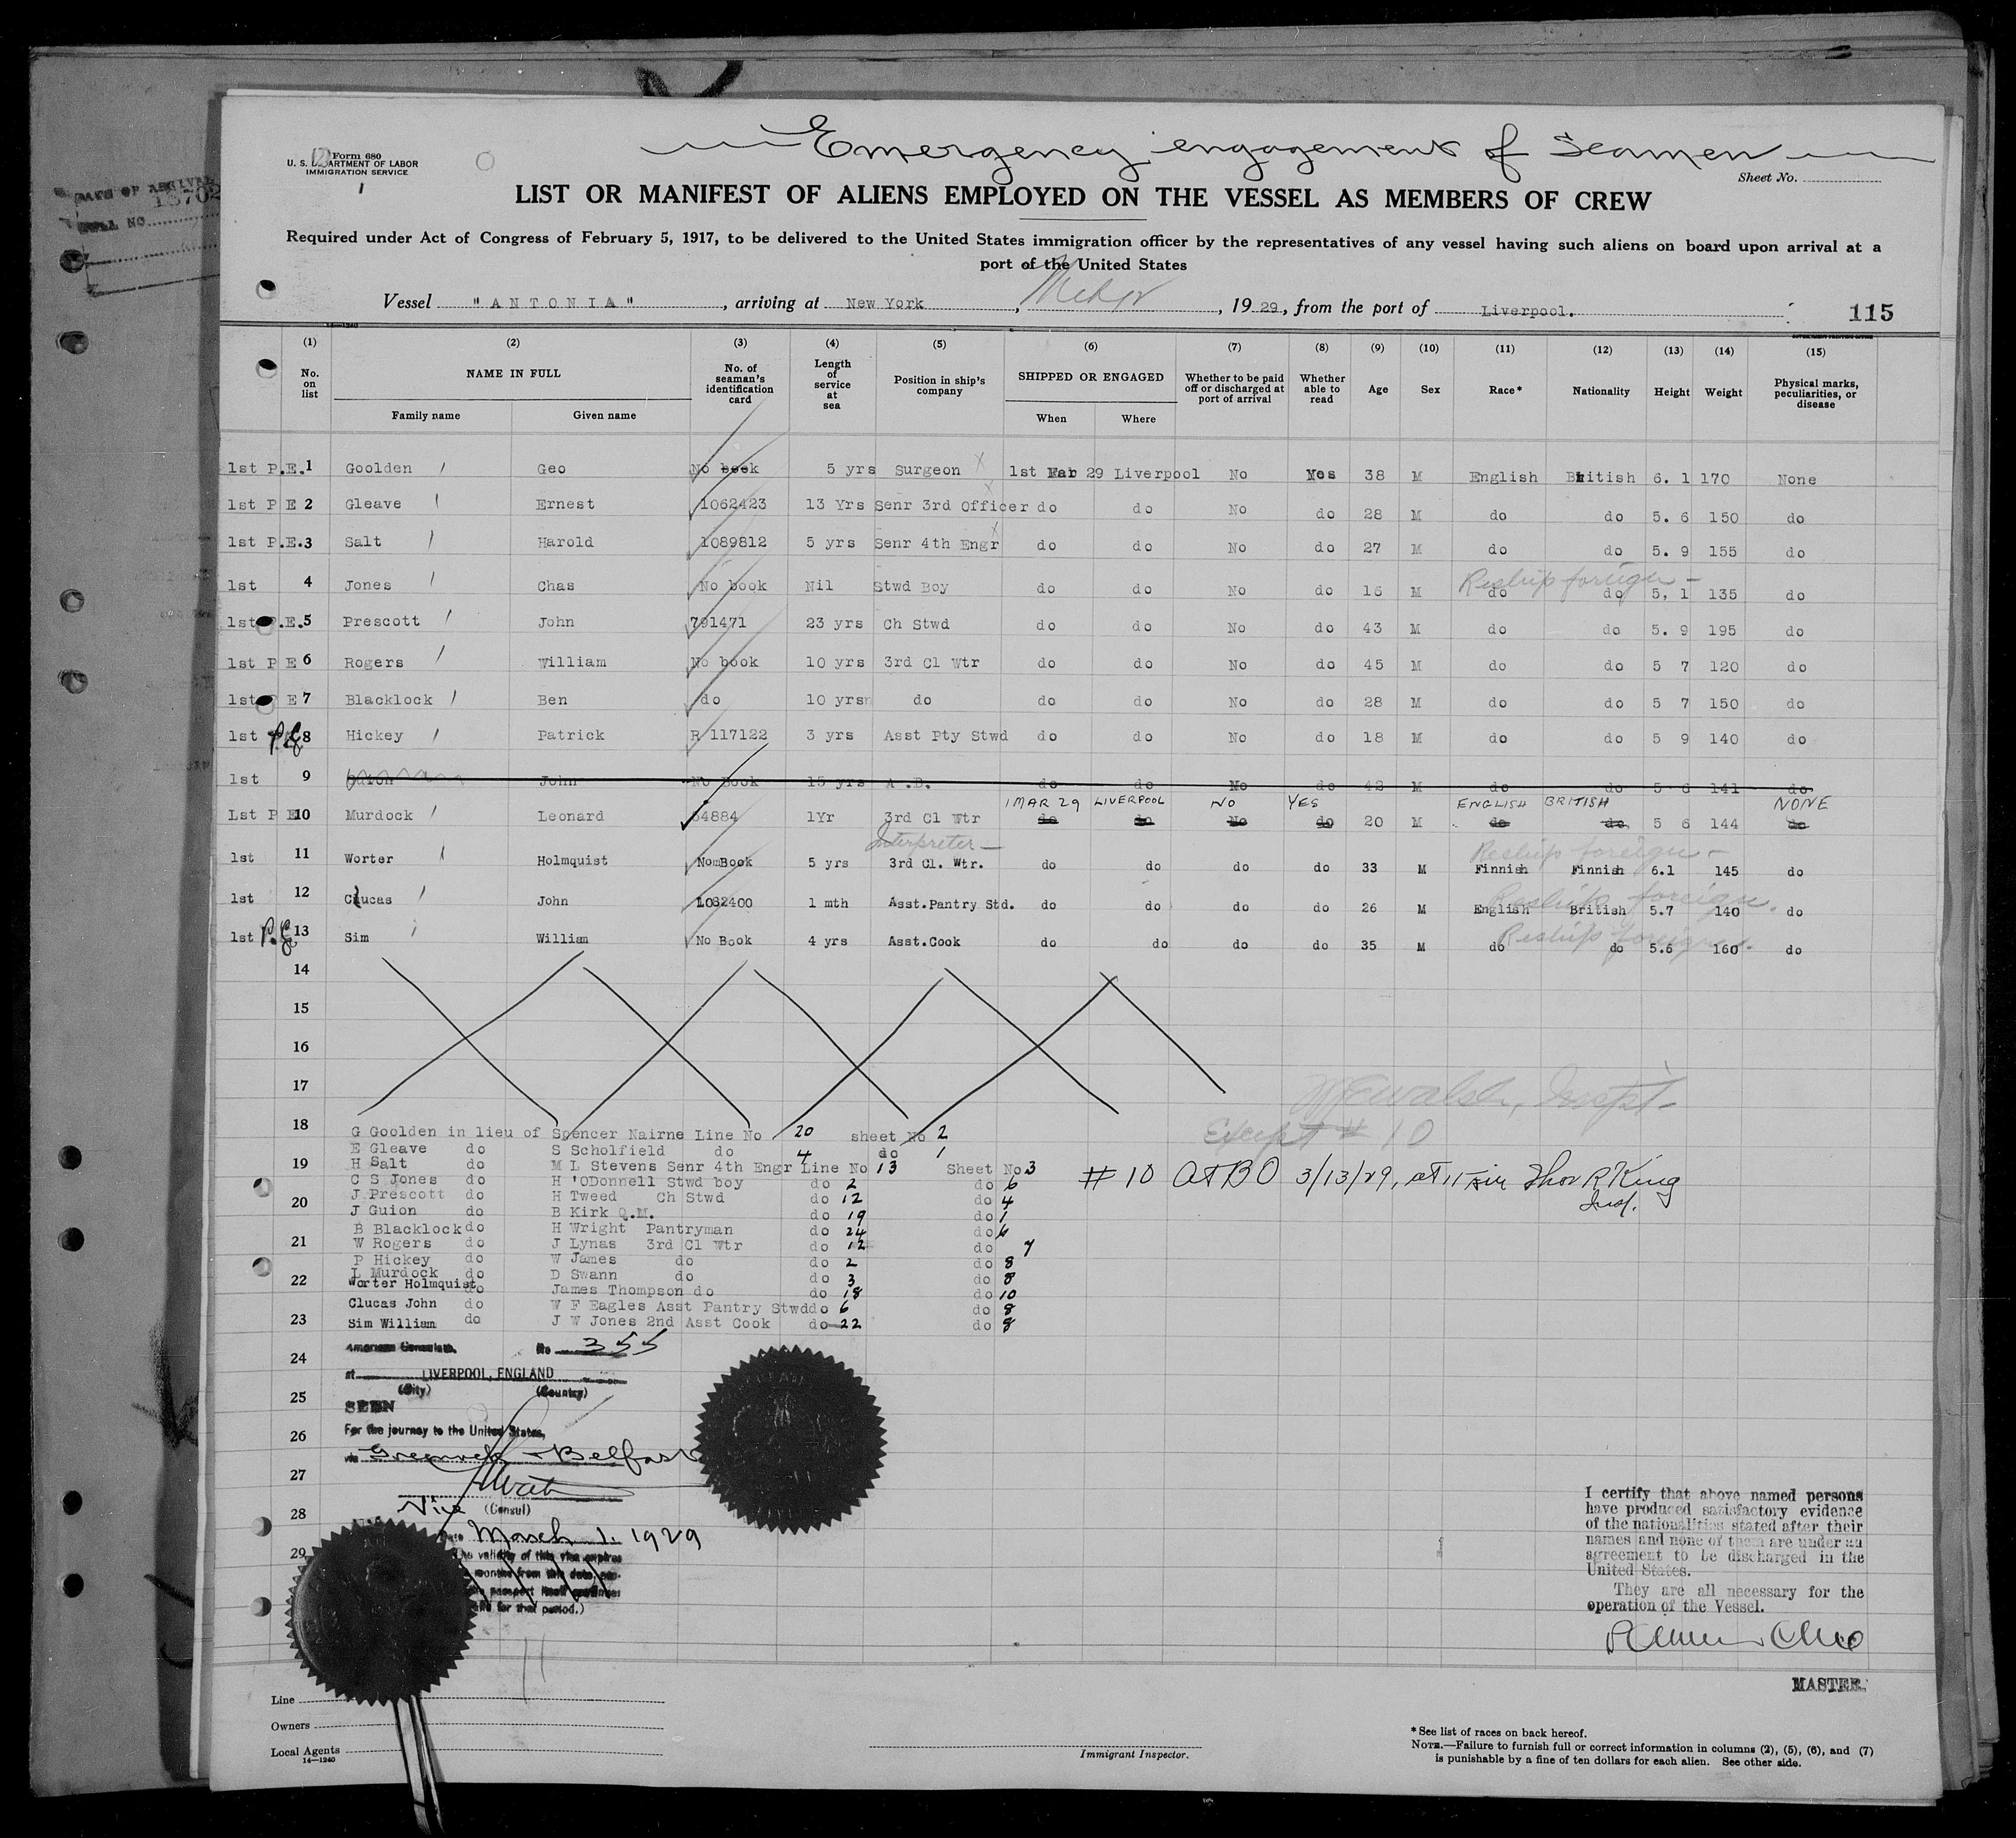 Emergency engagement of Seamen
Form 680
U. S. DEPARTMENT OF LABOR
IMMIGRATION SERVICE
1
Sheet No.
LIST OR MANIFEST OF ALIENS EMPLOYED ON THE VESSEL AS MEMBERS OF CREW
Required under Act of Congress of February 5, 1917, to be delivered to the United States immigration officer by the representatives of any vessel having such aliens on board upon arrival at a
port of the United States
Vessel "ANTONIA", arriving at New York, 1929, from the port of Liverpool.
115
(1) (2) (3) (4) (5) (6) (7) (8) (9) (10) (11) (12) (13) (14) (15)
No. on list NAME IN FULL Family name Given name No. of seaman's identification card Length of service at sea Position in ship's company SHIPPED OR ENGAGED When Where Whether to be paid off or discharged at port of arrival Whether able to read Age Sex Race* Nationality Height Weight Physical marks, peculiarities, or disease
1st P.E. 1 Goolden Geo No book 5 yrs Surgeon 1st Mar 29 Liverpool No Yes 38 M English British 6. 1 170 None
1st P E 2 Gleave Ernest 1062423 13 Yrs Senr 3rd Officer do do No do 28 M do do 5. 6 150 do
1st P.E. 3 Salt Harold 1089812 5 yrs Senr 4th Engr do do No do 27 M do do 5. 9 155 do
Reship foreign –
1st 4 Jones Chas No book Nil Stwd Boy do do No do 16 M do do 5, 1 135 do
1st P.E. 5 Prescott John 791471 23 yrs Ch Stwd do do No do 43 M do do 5. 9 195 do
1st P E 6 Rogers William No book 10 yrs 3rd Cl Wtr do do No do 45 M do do 5 7 120 do
1st P E 7 Blacklock Ben do 10 yrs do do do No do 28 M do do 5 7 150 do
1st P.E. 8 Hickey Patrick R 117122 3 yrs Asst Pty Stwd do do No do 18 M do do 5 9 140 do
1st 9 Guion John No Book 15 yrs A .B. do do No do 42 M do do 5 6 141 do
1 MAR 29 LIVERPOOL NO YES ENGLISH BRITISH NONE
1st P E 10 Murdock Leonard 54884 1Yr 3rd Cl Wtr do do No do 20 M do do 5 6 144 do
Interpreter – Reship foreign –
1st 11 Worter Holmquist NomBook 5 yrs 3rd Cl. Wtr. do do do do 33 M Finnish Finnish 6.1 145 do
Reship foreign.
1st 12 Clucas John 1082400 1 mth Asst.Pantry Std. do do do do 26 M English British 5.7 140 do
Reship foreign.
1st P.E. 13 Sim William No Book 4 yrs Asst.Cook do do do do 35 M do do 5.6 160 do
14
15
16
17
18
G Goolden in lieu of Spencer Nairne Line No 20 sheet No 2
Except # 10
E Gleave do S Scholfield do 4 do 1
19
H Salt do M L Stevens Senr 4th Engr Line No 13 Sheet No 3
# 10 at BO 3/13/29, Thos R King
Insp.
C S Jones do H 'ODonnell Stwd boy do 2 do 6
20
J Prescott do H Tweed Ch Stwd do 12 do 4
J Guion do B Kirk Q.M. do 19 do 1
B Blacklock do H Wright Pantryman do 24 do 6
21
W Rogers do J Lynas 3rd Cl Wtr do 12 do 7
P Hickey do W James do do 2 do 8
L Murdock do D Swann do do 3 do 8
22
Worter Holmquist do James Thompson do do 18 do 10
Clucas John do W F Eagles Asst Pantry Stwd do 6 do 8
23
Sim William do J W Jones 2nd Asst Cook do 22 do 8
American Consulate. No 355
24
at LIVERPOOL, ENGLAND
(City) (Country)
25
SEEN
For the journey to the United States,
26
via Greenock + Belfast
27
Vice (Consul)
28
Date March 1. 1929
29
The validity of this visa expires
months from this date,
passport
for that period.)
I certify that above named persons
have produced satisfactory evidence
of the nationalities stated after their
names and none of them are under an
agreement to be discharged in the
United States.
They are all necessary for the
operation of the Vessel.
MASTER.
Line
Owners
Local Agents
14—1240
Immigrant Inspector.
* See list of races on back hereof.
NOTE.—Failure to furnish full or correct information in columns (2), (5), (6), and (7)
is punishable by a fine of ten dollars for each alien. See other side.